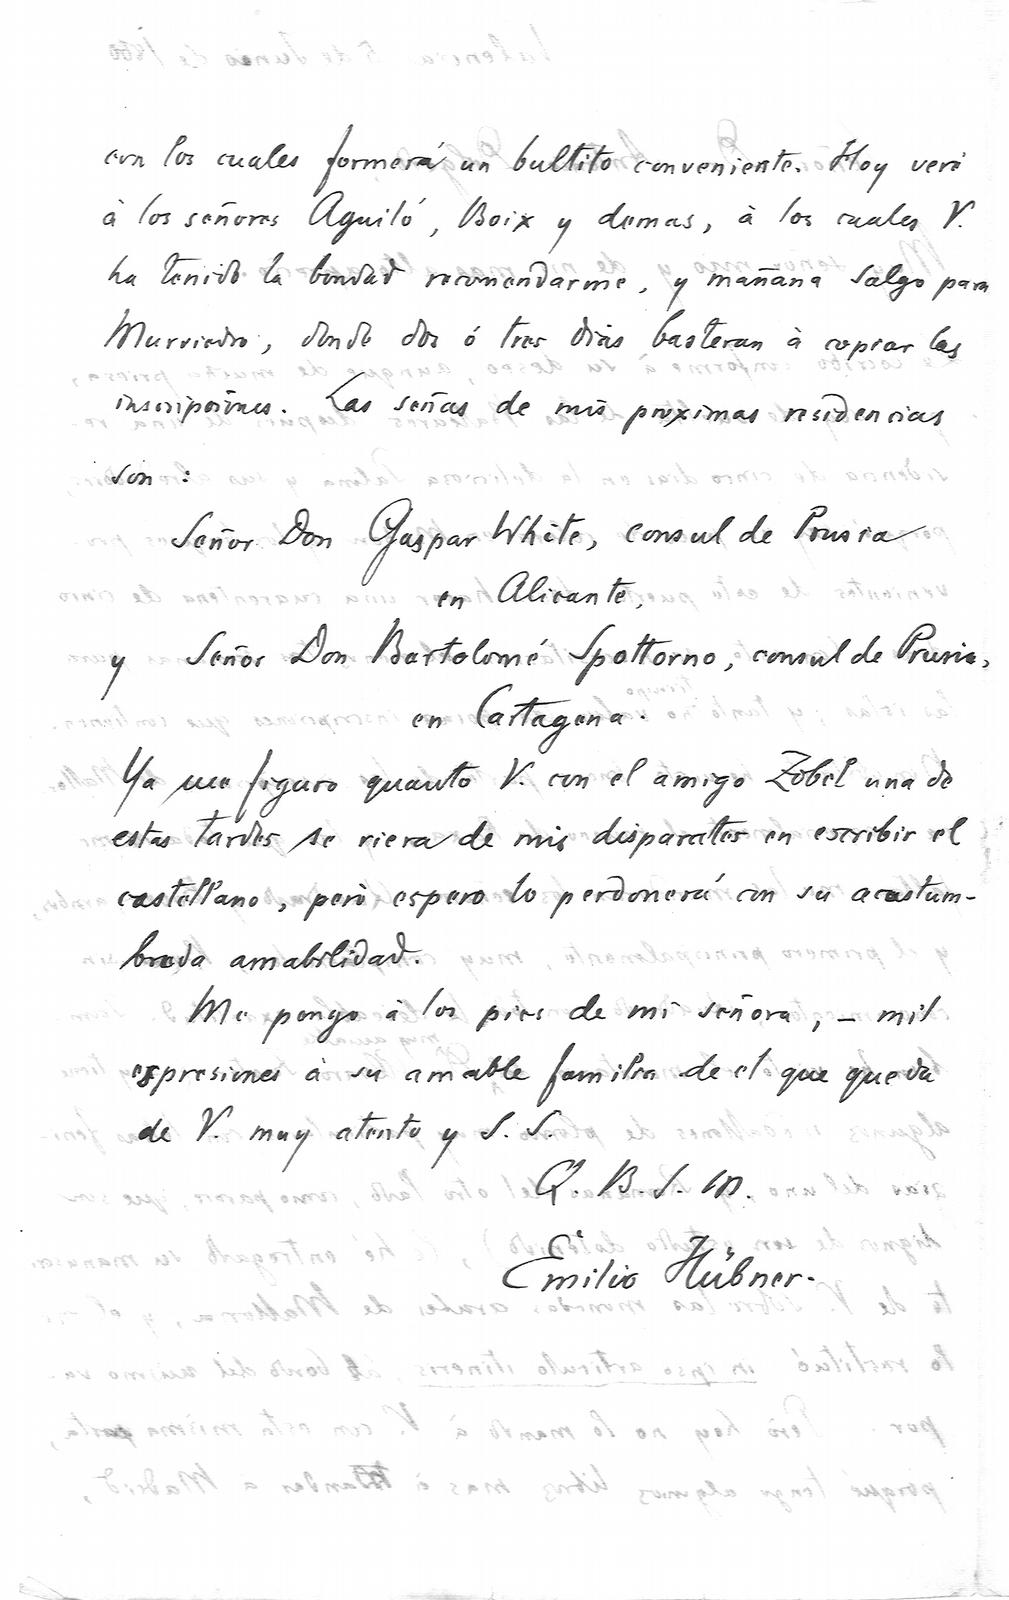 con los cuales formerá un bultito conveniente. Hoy veré
à los señores Aguiló, Boix y demas, à los cuales V.
ha tenido la bondad recomendarme, y mañana salgo para
Murviedro, donde dos ó tres dias basteran à copiar las
inscripciones. Las señas de mis proximas residencias
son:
Señor Don Gaspar White, consul de Prusia
en Alicante,
y Señor Don Bartolomé Spottorno, consul de Prusia,
en Cartagena.
Ya me figuro quanto V. con el amigo Zobel una de
estas tardes se riera de mis disparates en escribir el
castellano, però espero lo perdonerá con su acostum-
brada amabilidad.
Me pongo à los pies de mi señora, – mil
expresiones à su amable familia de el que queda
de V. muy atento y S. S.
Q. B. S. M.
Emilio Hübner.